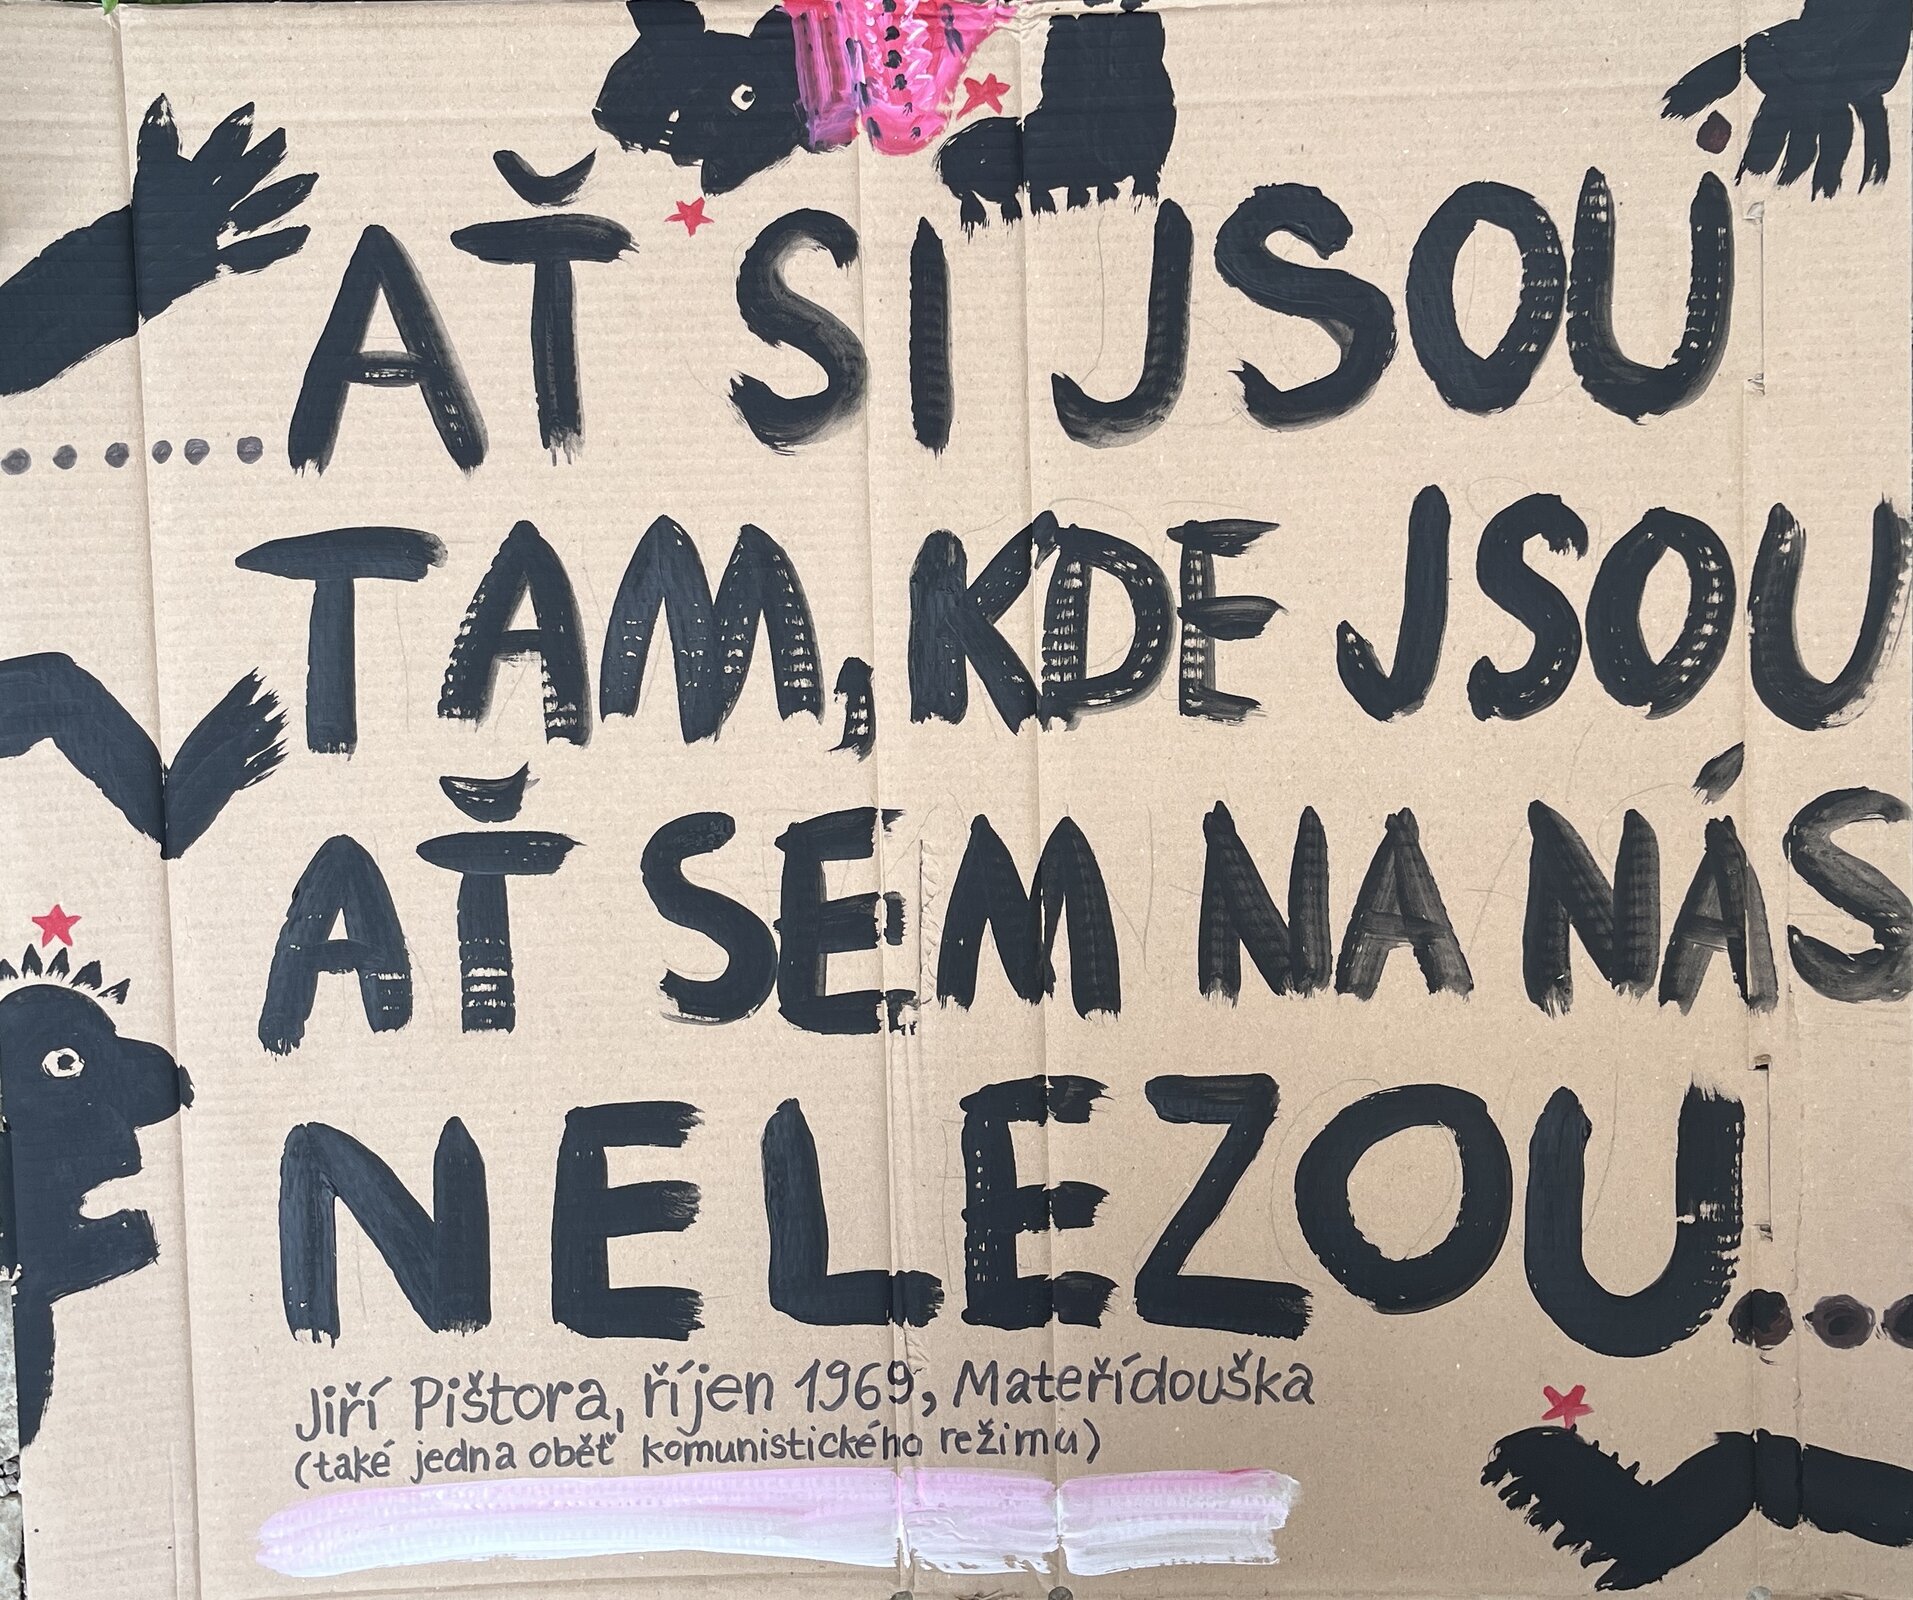 ......AŤ SI JSOU
TAM, KDE JSOU
AŤ SEM NA NÁS
NELEZOU...
Jiří Pištora, říjen 1969, Mateřídouška
(také jedna oběť komunistického režimu)